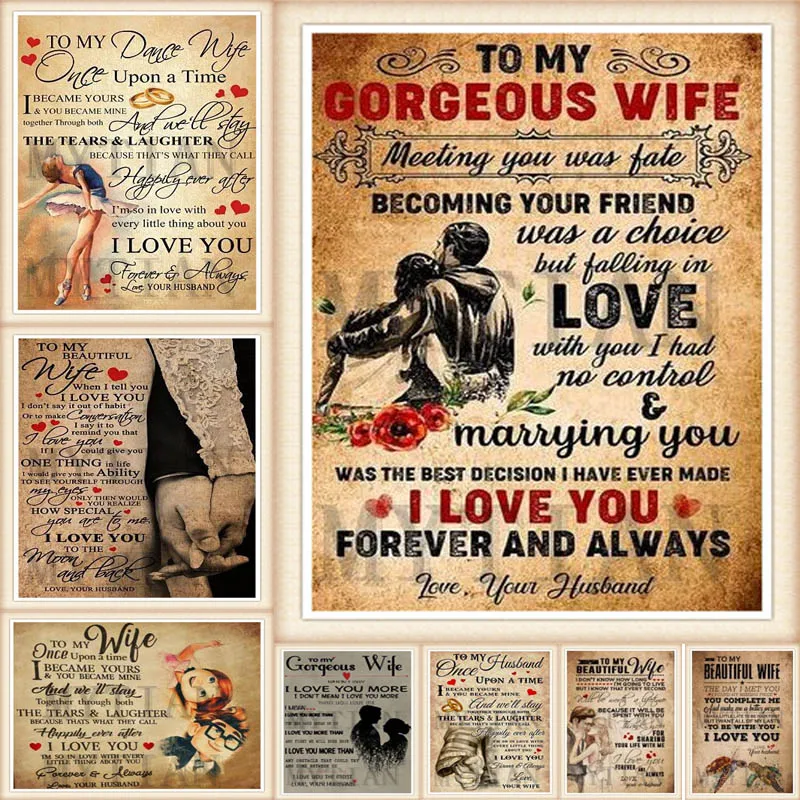 TO MY Dance Wife
Once Upon a Time
I BECAME YOURS
& YOU BECAME MINE
together Through both And we'll stay
THE TEARS & LAUGHTER
BECAUSE THAT'S WHAT THEY CALL
Happily ever after
I'm so in love with
every little thing about you
I LOVE YOU
Forever & Always
Love, YOUR HUSBAND
TO MY
GORGEOUS WIFE
Meeting you was fate
BECOMING YOUR FRIEND
was a choice
but falling in
LOVE
with you I had
no control
&
marrying you
WAS THE BEST DECISION I HAVE EVER MADE
I LOVE YOU
FOREVER AND ALWAYS
Love, Your Husband
TO MY
BEAUTIFUL
Wife
When I tell you
I LOVE YOU
I don't say it out of habit
Or to make Conversation
I say it to
remind you that
I love you
If I could give you
ONE THING in life
I would give you the Ability
TO SEE YOURSELF THROUGH
my eyes
ONLY THEN WOULD
YOU REALIZE
HOW SPECIAL
you are to me.
I LOVE YOU
TO THE
Moon
and back
LOVE, YOUR HUSBAND
TO MY Wife
Once Upon a time
I BECAME YOURS
& YOU BECAME MINE
And we'll stay
Together through both
THE TEARS & LAUGHTER
BECAUSE THAT'S WHAT THEY CALL
Happily ever after
I LOVE YOU
I'M SO IN LOVE WITH EVERY
LITTLE THING ABOUT YOU
Forever & Always
Love, YOUR HUSBAND
TO MY
Gorgeous Wife
I LOVE YOU MORE
DON'T MEAN I LOVE YOU MORE
I LOVE YOU MORE THAN
I LOVE YOU MORE THAN
I LOVE YOU MORE THAN
ANY OBSTACLE THAT COULD TRY
AND COME BETWEEN US
I LOVE YOU THE MOST
LOVE, YOUR HUSBAND
TO MY Husband
Once UPON A TIME
I BECAME YOURS
& YOU BECAME MINE
And we'll stay
TOGETHER THROUGH BOTH
THE TEARS & LAUGHTER
BECAUSE THAT'S WHAT THEY CALL
Happily ever after
I'M SO IN LOVE WITH
EVERY LITTLE THING
ABOUT YOU
I LOVE YOU
Forever & Always
Love,
YOUR WIFE
TO MY
BEAUTIFUL Wife
I DON'T KNOW HOW LONG
I'M GOING TO LIVE
BUT I KNOW THAT EVERY SECOND
BECAUSE IT WILL BE
SPENT WITH YOU
FOR
SHARING
YOUR LIFE WITH ME
I LOVE YOU
FOREVER AND ALWAYS
your husband
TO MY
BEAUTIFUL WIFE
THE DAY I MET YOU
YOU COMPLETE ME
TO BE WITH YOU
I LOVE YOU
Your husband